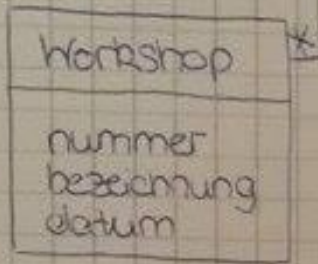 Workshop *
nummer
bezeichnung
datum